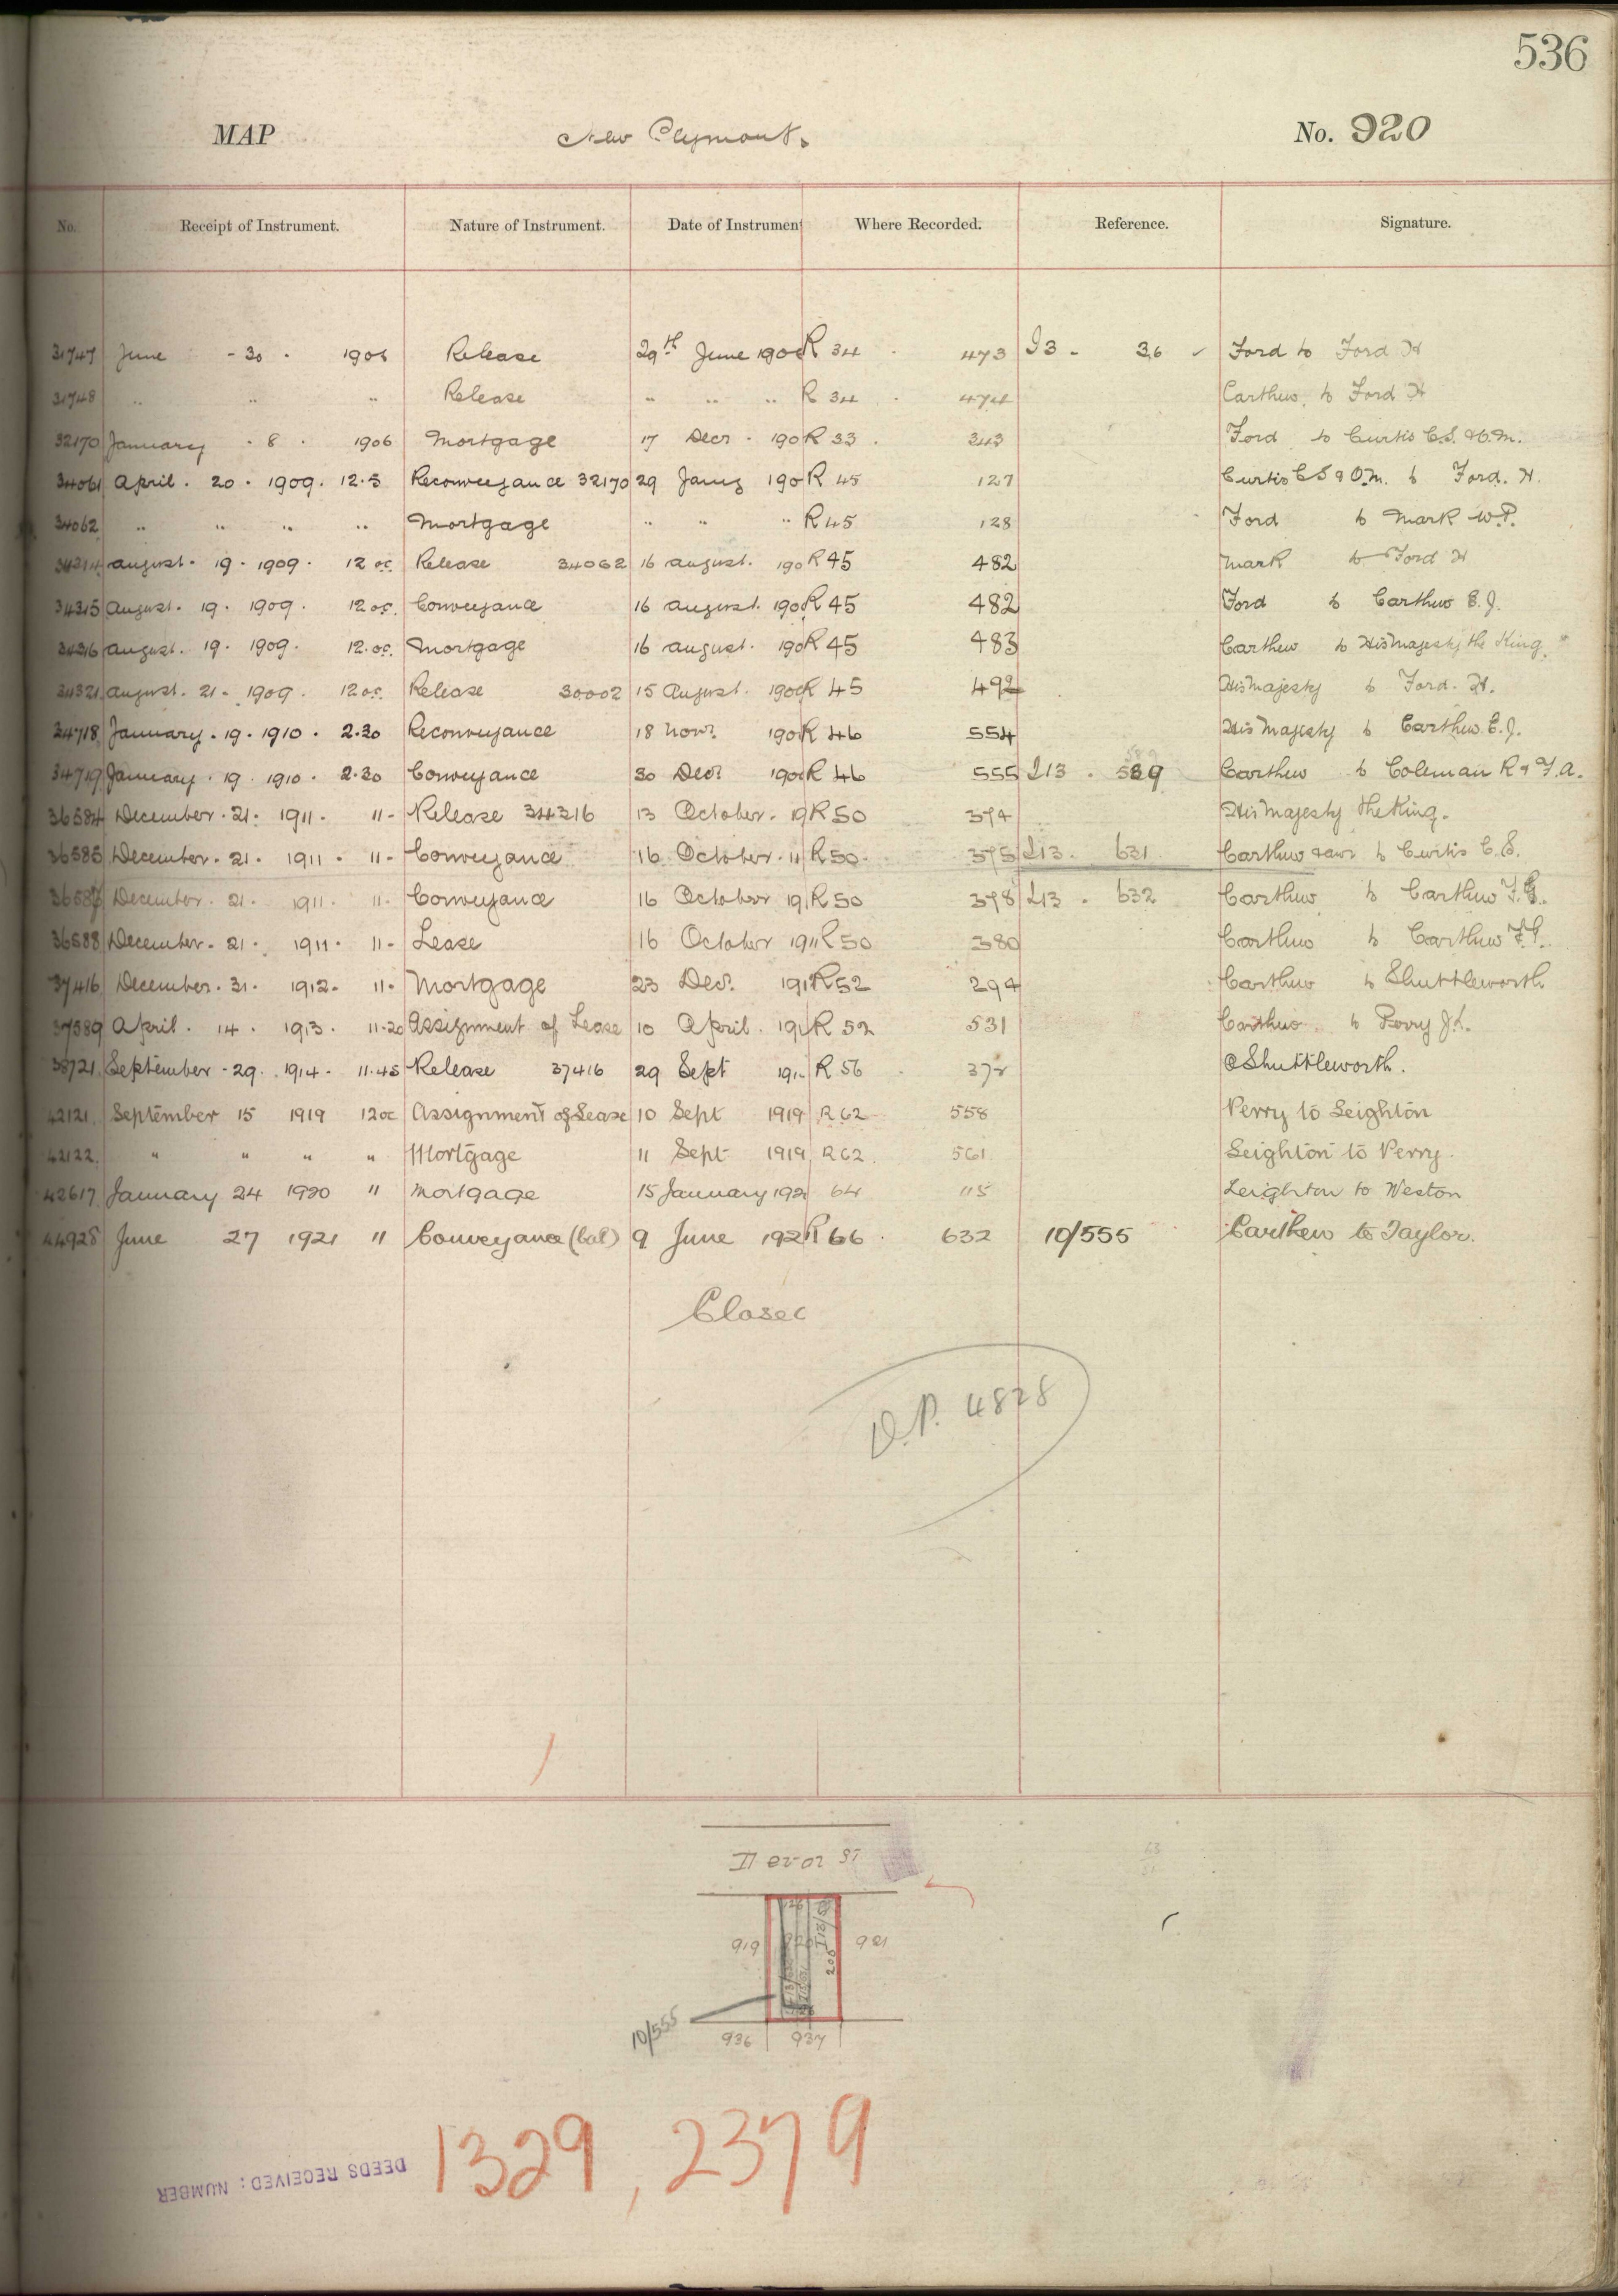 536
MAP New Plymouth. No. 920
No. Receipt of Instrument. Nature of Instrument. Date of Instrument Where Recorded. Reference. Signature.
31747 June - 30 . 1906 Release 29th June 190 R 34 . 473 I 3 - 36 Ford to Ford H
31748 " " " Release " " " R 34 . 474 Carthew to Ford H
32170 January . 8 . 1906 Mortgage 17 Decr . 190 R 33 . 343 Ford to Curtis C.S. & O.M.
34061 April . 20 . 1909 . 12.5 Reconveyance 32170 29 Jany 190 R 45 127 Curtis C S & O.M. to Ford. H.
34062 " " " " Mortgage " " " R 45 128 Ford to Mark W.P.
34314 August . 19 . 1909 . 12 oc Release 34062 16 August . 190 R 45 482 Mark to Ford H
34315 August . 19 . 1909 . 12 oc. Conveyance 16 August . 190 R 45 482 Ford to Carthew E.J.
34316 August . 19 . 1909 . 12.oc. Mortgage 16 August . 190 R 45 483 Carthew to His Majesty the King.
34321 August . 21 . 1909 . 12 oc. Release 30002 15 August . 190 R 45 492 His Majesty to Ford. H.
34718 January . 19 . 1910 . 2.30 Reconveyance 18 Novr 190 R 46 554 His Majesty to Carthew E.J.
34719 January . 19 . 1910 . 2.30 Conveyance 30 Decr 190 R 46 555 I13 . 589 Carthew to Coleman R & F.A.
36584 December . 21 . 1911 . 11 - Release 34316 13 October . 19 R 50 374 His Majesty the King.
36585 December . 21 . 1911 . 11 - Conveyance 16 October . 11 R 50 . 375 I13 . 631 Carthew & anr to Curtis C.S.
36587 December . 21 . 1911 . 11 - Conveyance 16 October 19 R 50 378 I13 . 632 Carthew to Carthew F.G.
36588 December . 21 . 1911 . 11 - Lease 16 October 1911 R 50 380 Carthew to Carthew F.G.
37416 December . 31 . 1912 . 11 . Mortgage 23 Decr 191 R 52 294 Carthew to Shuttleworth
37589 April . 14 . 1913 . 11.20 Assignment of Lease 10 April . 191 R 52 531 Carthew to Perry J.L.
38721 September - 29 . 1914 . 11.45 Release 37416 29 Sept 191 R 56 372 Shuttleworth.
42121 September 15 1919 12 oc Assignment of Lease 10 Sept 1919 R 62 558 Perry to Leighton
42122. " " " " Mortgage 11 Sept 1919 R 62 . 561 Leighton to Perry
42617 January 24 1920 " Mortgage 15 January 192 64 115 Leighton to Weston
44928 June 27 1921 " Conveyance (bal) 9 June 192 R 66 . 632 10/555 Carthew to Taylor.
Closed
D.P. 4828
Devon St
919 920 921
206
10/555
936 937
DEEDS RECEIVED: NUMBER
1329, 2379